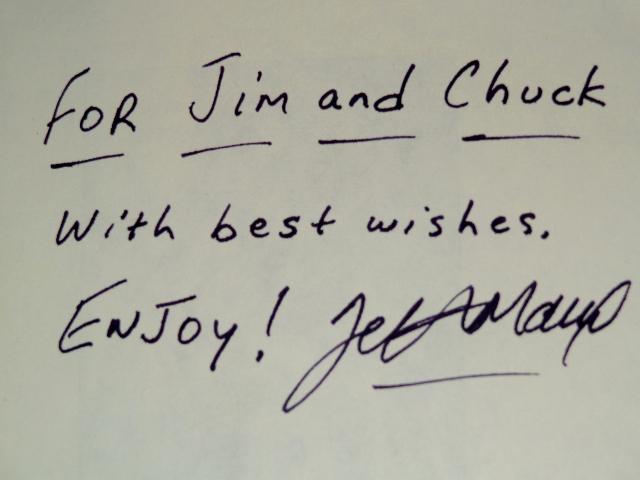 FOR Jim and Chuck
With best wishes.
ENJOY!